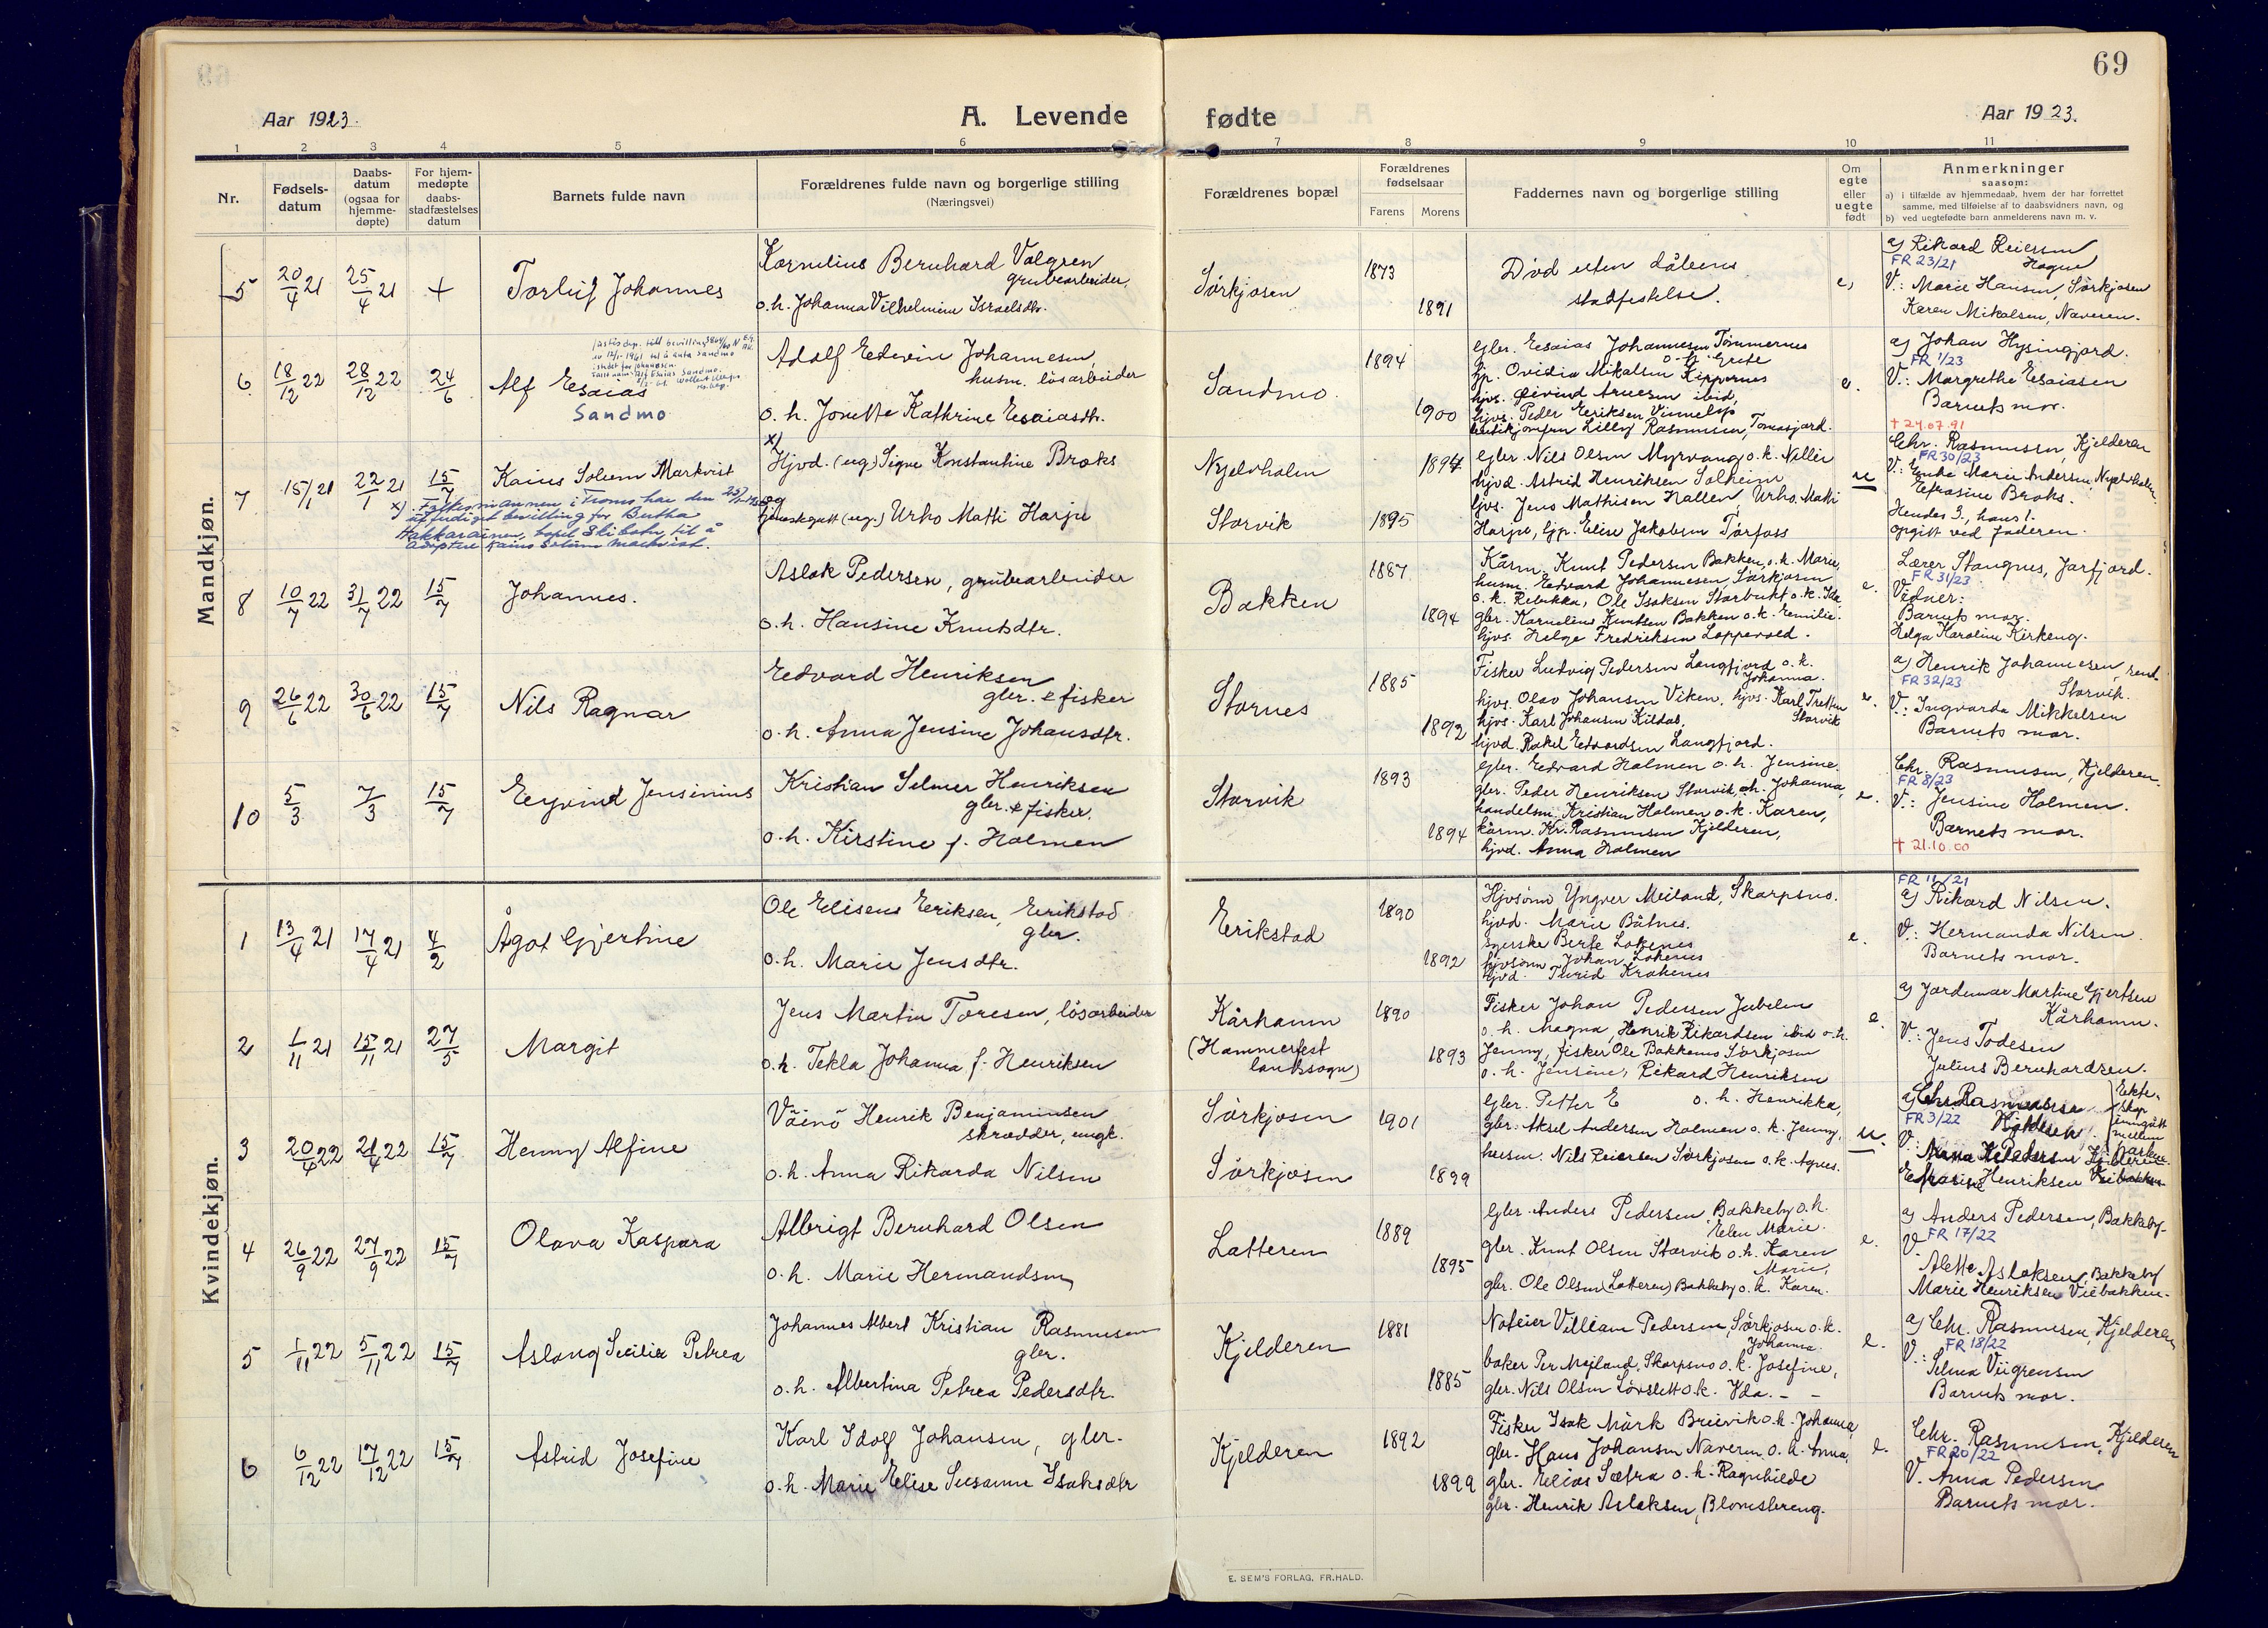 69
Aar 1923.
A. Levende
fødte
Aar 1923.
1 2 3 4 5 6 7 8 9 10 11
Nr.
Fødsels-
datum
Daabs-
datum
(ogsaa for
hjemme-
døpte)
For hjem-
medøpte
daabs-
stadfæstelses
datum
Barnets fulde navn
Forældrenes fulde navn og borgerlige stilling
(Næringsvei)
Forældrenes bopæl
Forældrenes
fødselsaar
Farens Morens
Faddernes navn og borgerlige stilling
Om
egte
eller
uegte
født
Anmerkninger
saasom:
a) i tilfælde av hjemmedaab, hvem der har forrettet
samme, med tilføielse af to daabsvidners navn, og
b) ved uegtefødte barn anmelderens navn m. v.
Mandkjøn.
5
20/4 21
25/4 21
+
Torluf Johannes
Kornelius Bernhard Valgren
grubearbeider,
o.h. Johanna Vilhelmine Israelsdtr.
Sørkjosen
1873
1891
Død uten dåbens
stadfestelse.
e,
a) Rikard Reiersen
FR 23/21 Hagen
V.: Marie Hansen, Sørkjosen
Karen Mikalsen, Naveren.
6.
18/12 22
28/12 22
24/6
Alf Esaias
Sandmo
Adolf Edvin Johannesen,
husm. løsarbeider
o. h. Jonette Kathrine Esaiasdtr.
Sandmo
1894
1900
gbr. Esaias Johannesen Tømmernes
o. h. Grete
hjvs. Øivind Arnesen ibid,
hjvs. Peder Eriksen
butikjomfru Lilly Rasmussen, Tomasjord.
e.
a) Johan Hysingjord.
FR 1/23
V.: Margrethe Esaiasen
Barnets mor.
+ 24.07.91
7
15/1 21
22/1 21
15/7
Kaius Solum Markvist
x) Fylkesmannen i Troms har den
utferdiget bevilling for Bertha
Hakkarainen, bopel Skibotn, til å
adoptere Kaius Solum Markvist.
x)
Hjvd. (ug) Signe Konstantine Braks
og
(ug.) Urho Matti Harju
Njelvholm
Storvik
1894
1895
gbr. Nils Olsen Myrvang o.k. Nellie
hjvd. Astrid Henriksen Solheim
hjvs. Jens Mathisen Hallen, Urho Matti
Harju, hjp. Eline Jakobsen Tørfoss
u
Chr. Rasmussen, Kjelderen
FR 30/23
V: Emma Marie Andersen, Njelvholm
Efrasine Braks.
Hendes 3., hans 1.
opgitt ved faderen.
8
10/7 22
31/7 22
15/7
Johannes.
Aslak Pedersen, grubearbeider
o.h. Hansine Knutsdtr.
Bakken
1887
1894
Kårm. Knut Pedersen Bakken, o.k. Marie,
husm. Edvard Johannesen Sørkjosen
o. k. Rebekka, Ole Isaksen Storbukt o.k. Ida
gbr. Kornelius Knutsen Bakken o.k. Emilie.
hjvs. Helge Fredriksen Loppevold.
e.
Lærer Stangnes, Jarfjord.
FR 31/23
Vidner:
Barnets mor.
Helga Karoline Kirkeng.
9
26/6 22
30/6 22
15/7
Nils Ragnar
Edvard Henriksen
gbr. & fisker
o. h. Anna Jensine Johansdtr.
Stornes
1885
1892
Fisker Ludvig Pedersen Langfjord o.k.
Johanna.
hjvs. Olav Johansen Viken, hjvs. Karl Tretten
hjvs. Karl Johansen Kildal, Storvik
hjvd. Rakel Edvardsen Langfjord.
e.
a) Henrik Johannesen,
FR 32/23
Storvik.
V.: Ingvarda Mikkelsen
Barnets mor.
10
5/3
7/3
15/7
Eyvind Jensinius
Kristian Selmer Henriksen
gbr. & fisker.
o. h. Kirstine f. Holmen
Storvik
1893
1894
gbr. Edvard Holmen o.h. Jensine.
gbr. Peder Henriksen Storvik, o.h. Johanna,
handelsm. Kristian Holmen o.k. Karen,
kårm. Kr. Rasmussen Kjelderen,
hjvd. Anna Holmen
e.
Chr. Rasmussen, Kjelderen
FR 8/23
V.: Jensine Holmen.
Barnets mor.
+ 21.10.00
Kvindekjøn.
1
13/4 21
17/4 21
4/2
Ågot Gjertine
Ole Elisens Eriksen, Erikstad
gbr.
o.h. Marie Jensdtr.
Erikstad
1890
1892
Hjvsønn Yngver Meiland, Skarpsno.
hjvd. Marie Båtnes.
syerske Berte Løkenes
hjvsønn Johan Løkenes
hjvd. Turid Krakenes
e.
FR 11/21
a) Rikard Nilsen.
V.: Hermanda Nilsen.
Barnets mor.
2
1/11 21
15/11 21
27/5
Margit
Jens Martin Toresen, løsarbeider
o.h. Tekla Johanna f. Henriksen
Kårhamn
(Hammerfest
landsogn)
1890
1893
Fisker Johan Pedersen Jubelen
o. h. Magna, Henrik Rikardsen ibid o.h.
Jenny, fisker Ole Bakkemo Sørkjosen
o. h. Jensine, Rikard Henriksen
e.
a) Jordemor Martine Gjertsen
Kårhamn.
V.: Jens Todesen
Julius Bernhardsen.
3
20/4 22
21/4 22
15/7
Henny Alfine
Väinö Henrik Benjaminsen
skrædder, ungk.
o.h. Anna Rikarda Nilsen
Sørkjosen
Sørkjosen
1901
1899
gbr. Petter E o. h. Henrikka,
gbr. Aksel Andersen Holmen o. k. Jenny,
husm. Nils Reiersen Sørkjosen o.k. Agnes.
u.
a) Chr. Rasmussen
FR 3/22 Kjelderen
Ekte-
skap
inngått
mellem
V.:
Efrasine Henriksen Veibakken
4
26/9 22
27/9 22
15/7
Olava Kaspara
Albrigt Bernhard Olsen
o.h. Marie Hermandsen
Latteren
1889
1895
gbr. Anders Pedersen Bakkeby o.h.
Elen Marie.
gbr. Knut Olsen Storvik o.h. Karen
Marie,
gbr. Ole Olsen (Latteren) Bakkeby o.k. Karen.
e.
a) Anders Pedersen, Bakkeby
V FR 17/22
Alette Aslaksen, Bakkeby
Marie Henriksen Veibakken.
5
1/11 22
5/11 22
15/7
Aslaug Secilie Petrea
Johannes Albert Kristian Rasmussen
gbr.
o.h. Albertina Petrea Pedersdtr.
Kjelderen
1881
1885
Noteier Villiam Pedersen, Sørkjosen o.k.
Johanna.
baker Per Mejland, Skarpsno o.k. Josefine,
gbr. Nils Olsen Løvslett o.k. Ida. – –
e.
a) Chr. Rasmussen, Kjelderen
FR 18/22
V.: Selma Viigrensen
Barnets mor.
6
6/12 22
17/12 22
15/7
Astrid Josefine
Karl Idolf Johansen, gbr.
o.h. Marie Elise Susanne Isaksdtr
Kjelderen
1892
1899
Fisker Isak Mørk Breivik o.h. Johanna
gbr. Hans Johansen Naveren o.h. Anna,
gbr. Elias Sætra o.h. Ragnhilde
gbr. Henrik Aslaksen, Blomstereng.
e.
Chr. Rasmussen, Kjelderen
FR 20/22
V. Anna Pedersen
Barnets mor.
E. SEM'S FORLAG, FR.HALD.